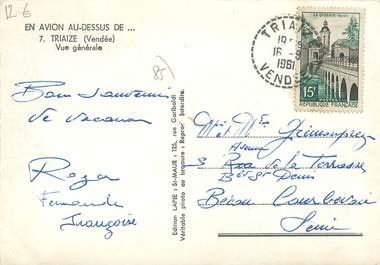 12-€
EN AVION AU-DESSUS DE ...
7. TRIAIZE (Vendée)
Vue générale
85)
Bon Souvenir
de vacances
Roger
Fernande
Françoise
Edition LAPIE : St-MAUR : 125, rue Garibaldi
Véritable photo au bromure : Reprod. Interdite.
TRIAIZE
16 -
1961
VENDÉE
15F
REPUBLIQUE FRANÇAISE
Mr et Mme
Rue de la Terrasse
Bt St Denis
Bécon Courbevoie
Seine